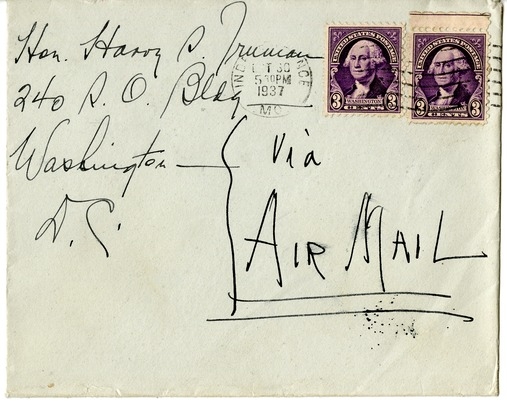 Hon. Harry S. Truman
240 S. O. Bldg
Washington
D.C.
Via
AIR MAIL
INDEPENDENCE
OCT 30
5 30 PM
1937
MO.
UNITED STATES POSTAGE
3 WASHINGTON 3
CENTS
UNITED STATES POSTAGE
3 WASHINGTON 3
CENTS